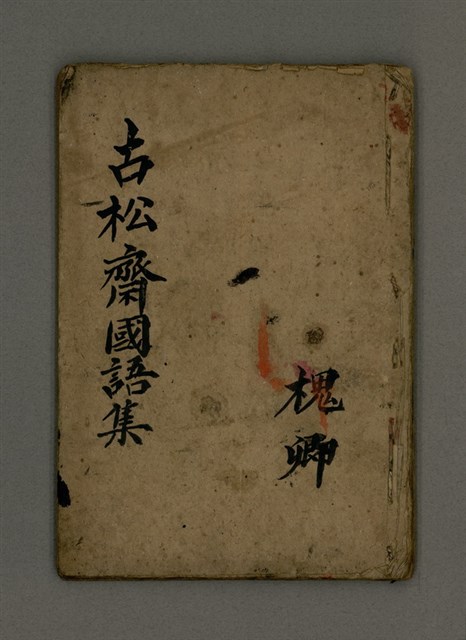 槐卿
古松齋國語集